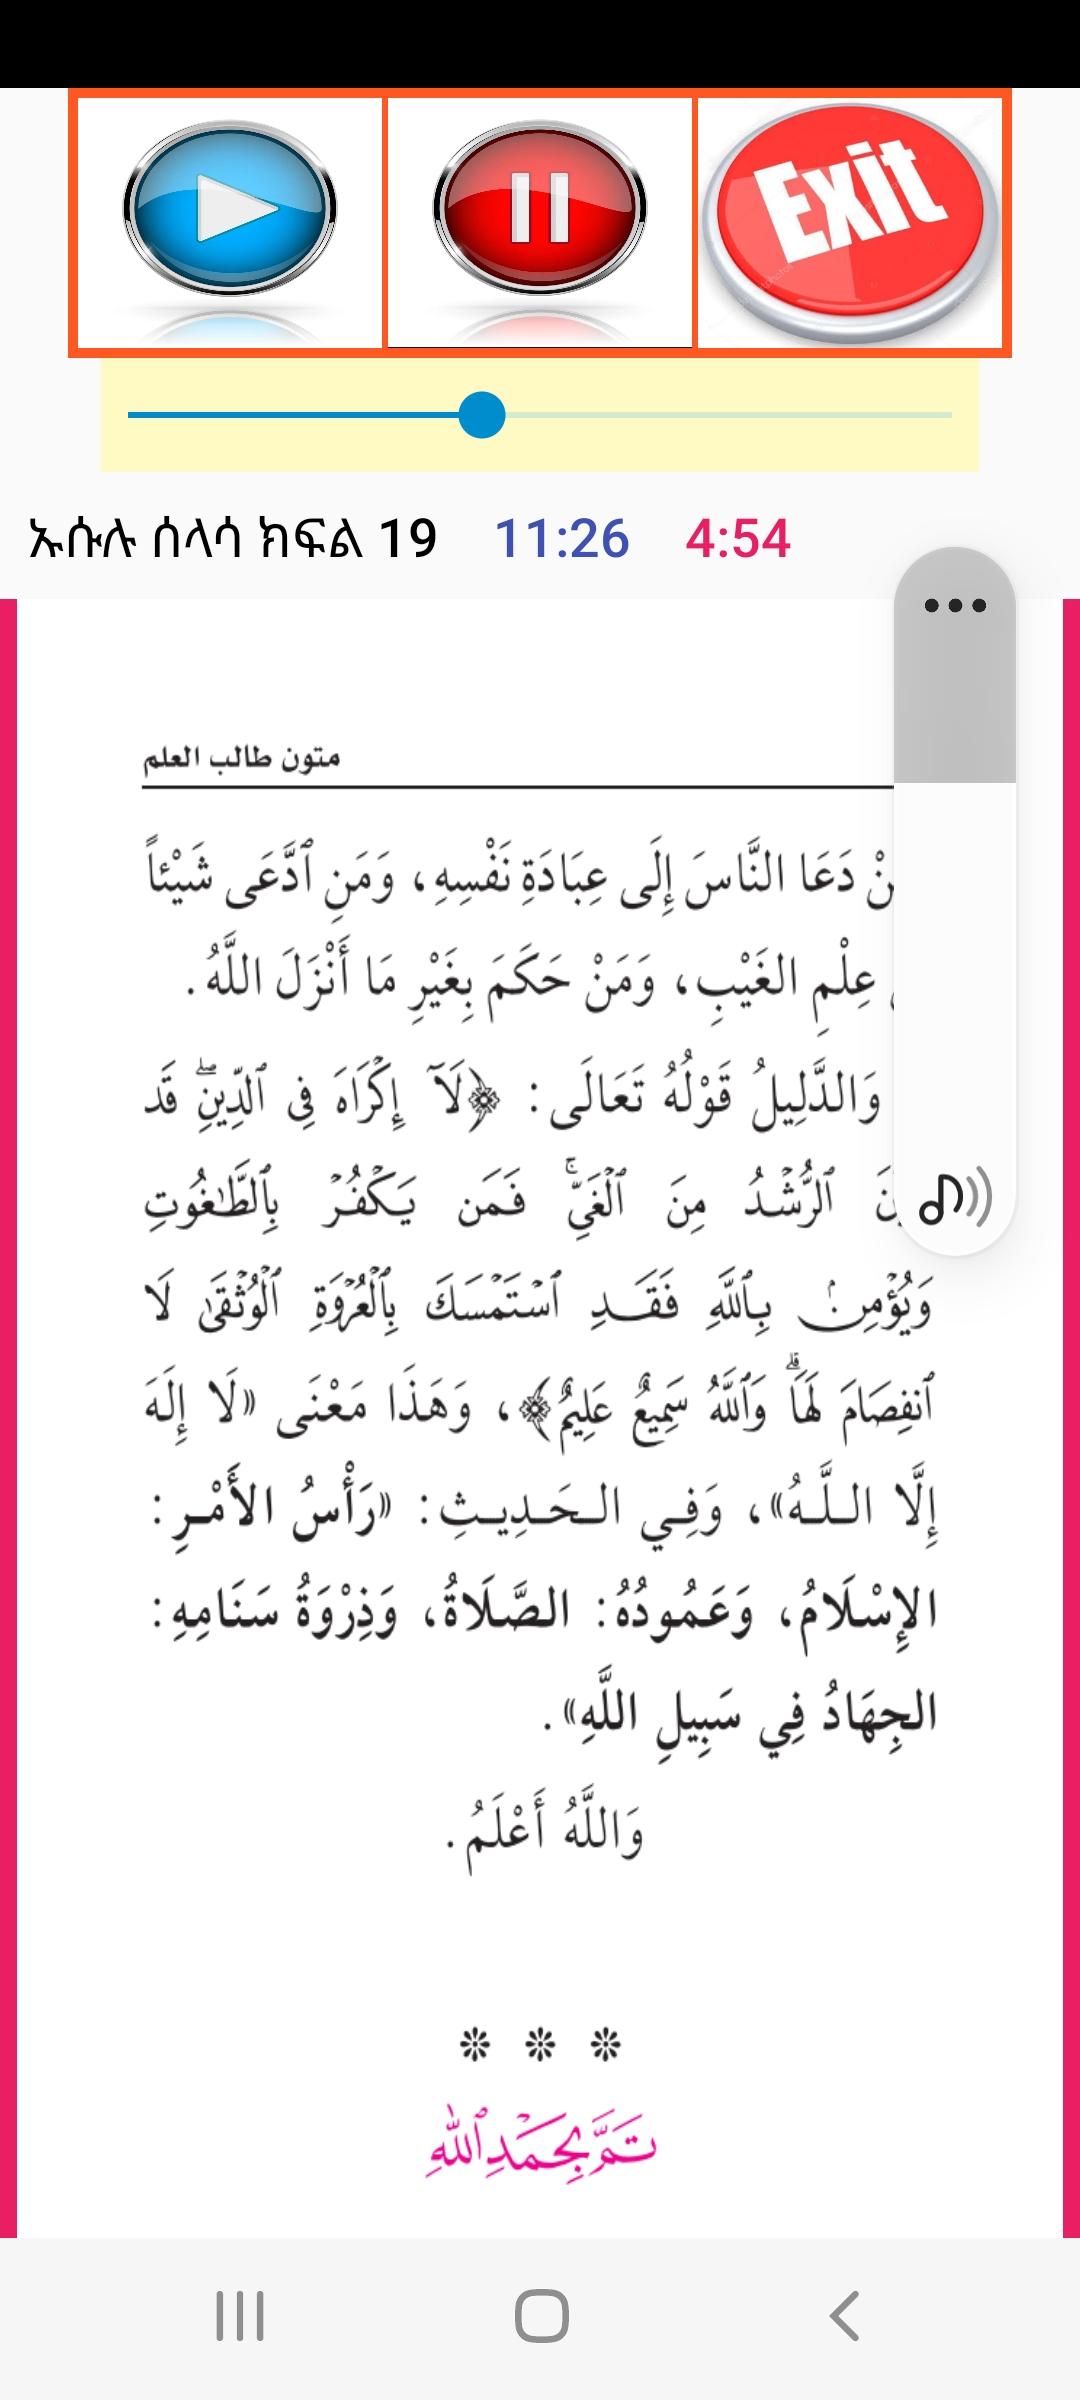 Exit
ኡሱሉ ሰላሳ ክፍል 19 11:26 4:54
متون طالب العلم
دَعَا النَّاسَ إِلَى عِبَادَةِ نَفْسِهِ، وَمَنِ ٱدَّعَى شَيْئاً
عِلْمِ الغَيْبِ، وَمَنْ حَكَمَ بِغَيْرِ مَا أَنْزَلَ اللَّهُ.
وَالدَّلِيلُ قَوْلُهُ تَعَالَى: ﴿لَآ إِكْرَاهَ فِي ٱلدِّينِۖ قَد
ٱلرُّشْدُ مِنَ ٱلْغَيِّۚ فَمَن يَكْفُرْ بِٱلطَّٰغُوتِ
وَيُؤْمِنۢ بِٱللَّهِ فَقَدِ ٱسْتَمْسَكَ بِٱلْعُرْوَةِ ٱلْوُثْقَىٰ لَا
ٱنفِصَامَ لَهَاۗ وَٱللَّهُ سَمِيعٌ عَلِيمٌ﴾، وَهَذَا مَعْنَى «لَا إِلَهَ
إِلَّا اللَّهُ»، وَفِي الحَدِيثِ: «رَأْسُ الأَمْرِ:
الإِسْلَامُ، وَعَمُودُهُ: الصَّلَاةُ، وَذِرْوَةُ سَنَامِهِ:
الجِهَادُ فِي سَبِيلِ اللَّهِ».
وَاللَّهُ أَعْلَمُ.
تَمَّ بِحَمْدِ ٱللهِ